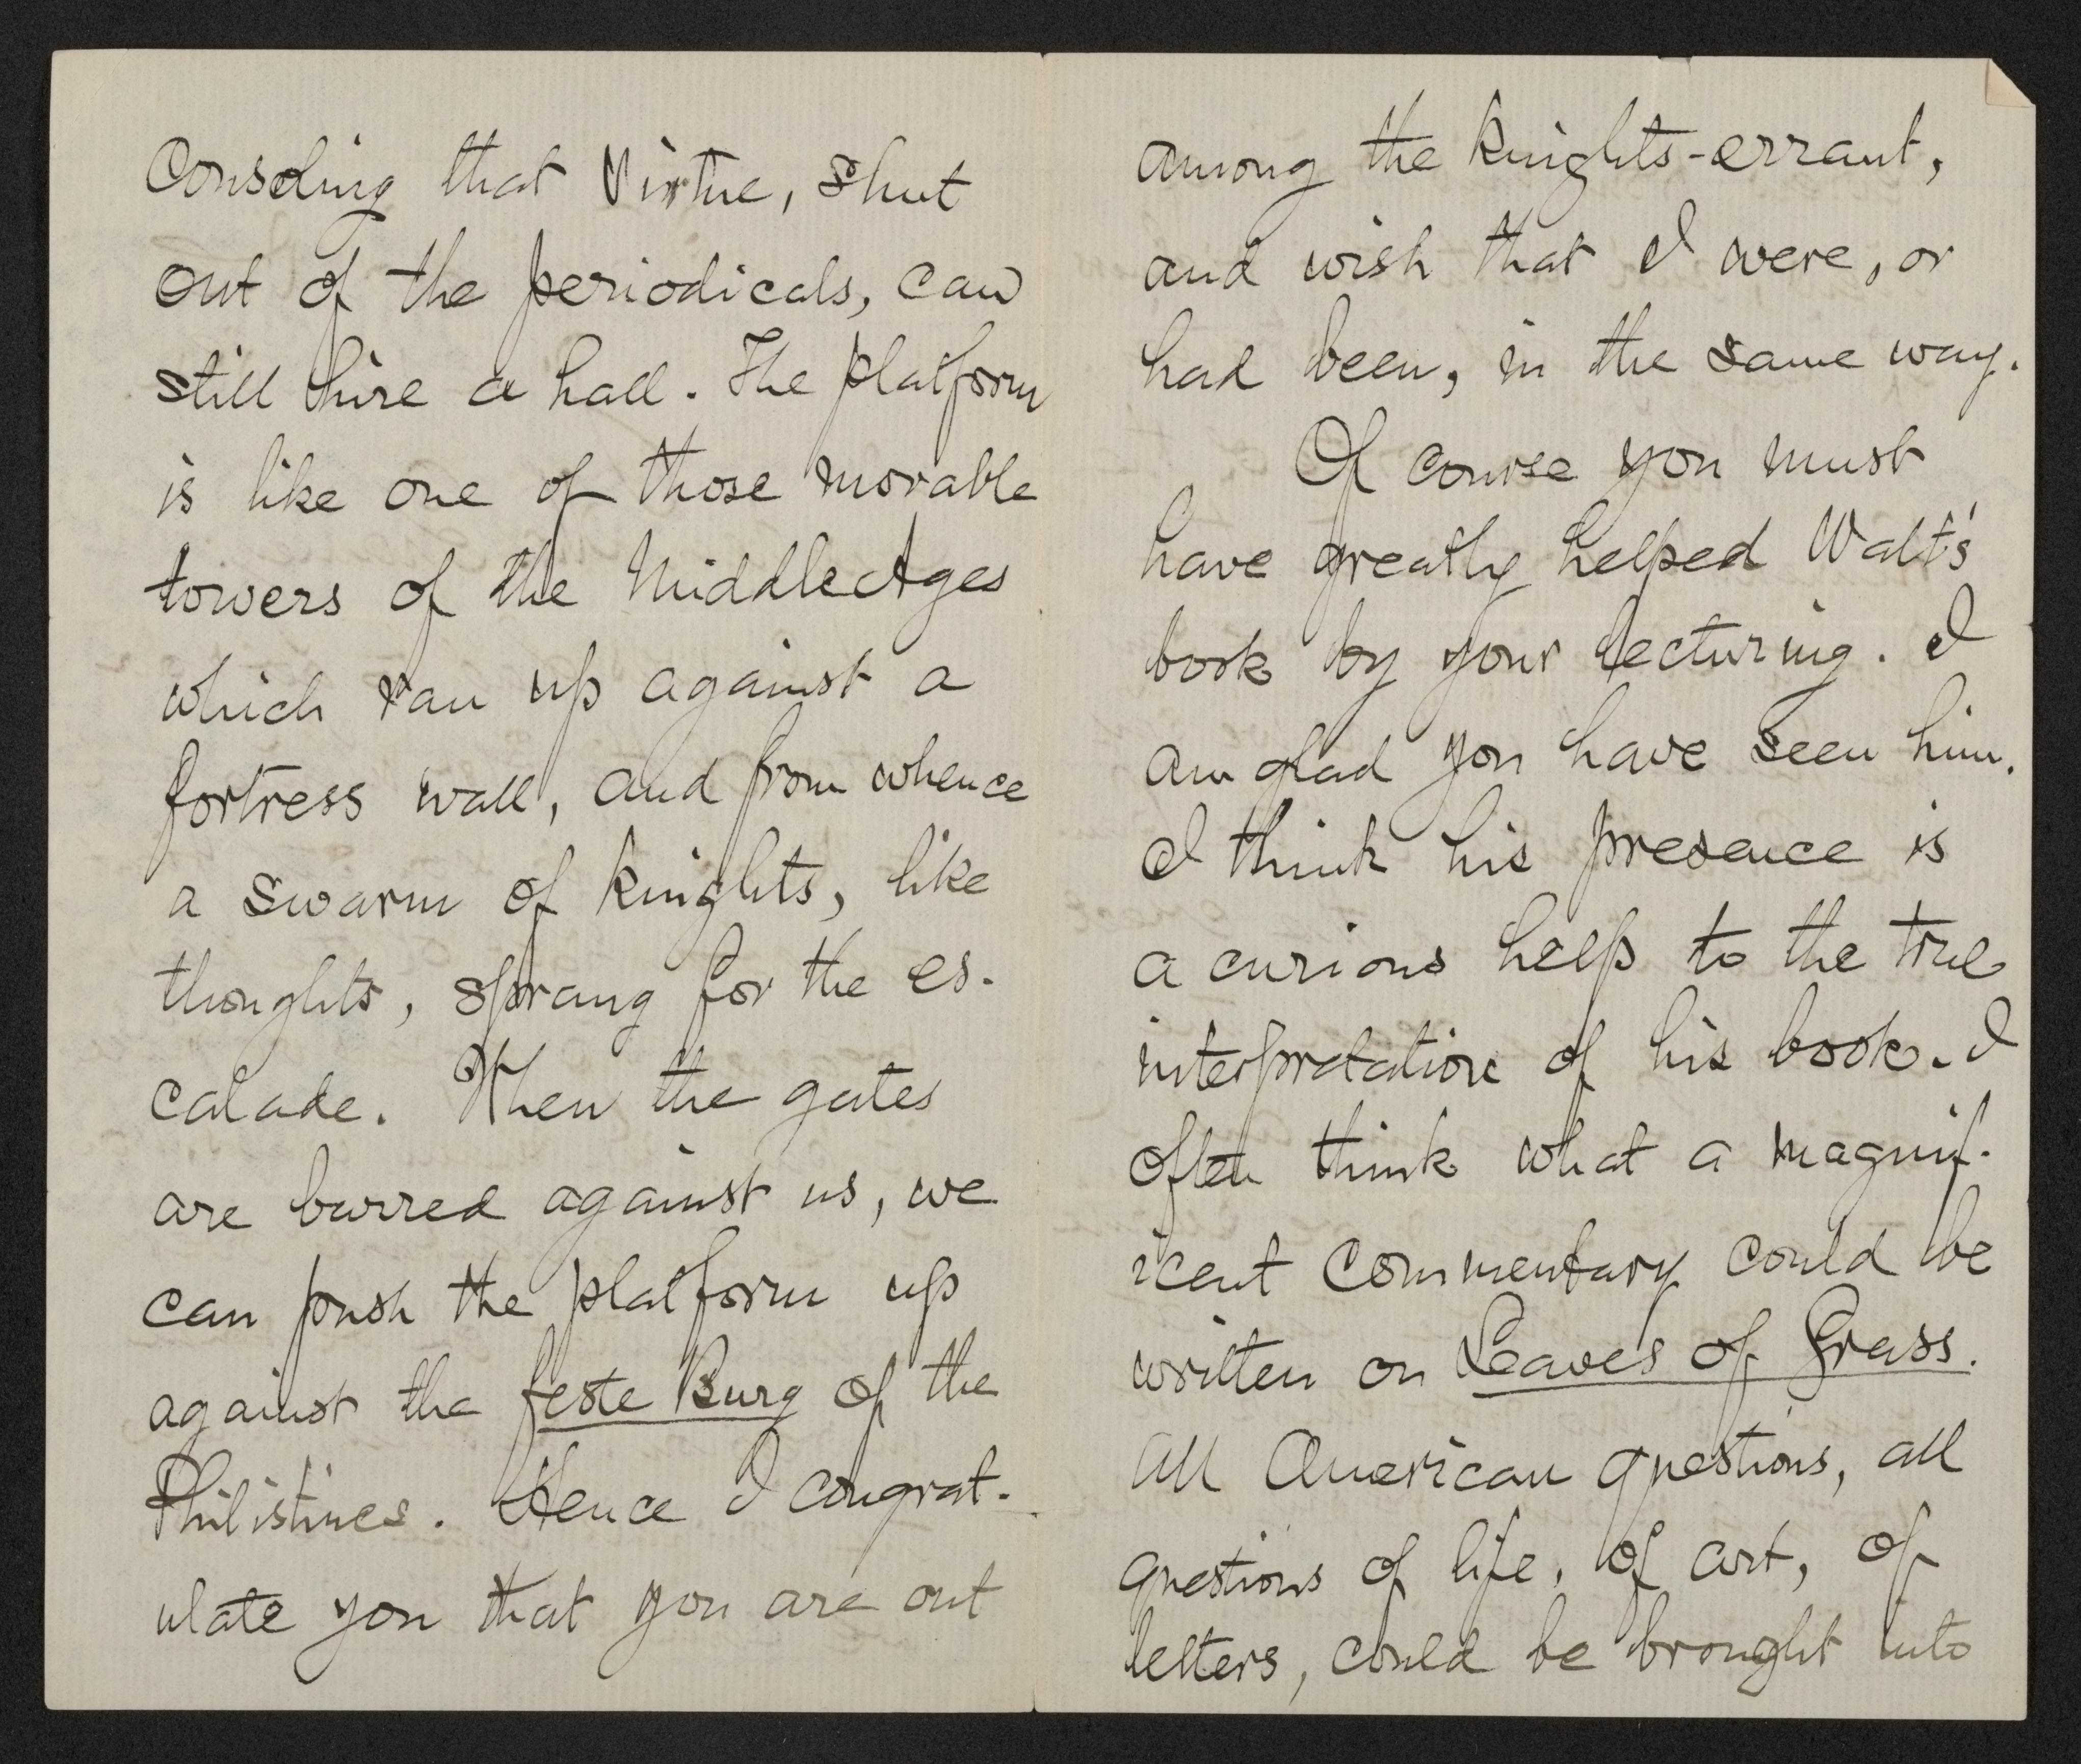 Consoling that Virtue, shut
out of the periodicals, can
still hire a hall. The platform
is like one of those movable
towers of the Middle Ages
which ran up against a
fortress wall, and from whence
a swarm of knights, like
thoughts, sprang for the es-
calade. When the gates
are barred against us, we
can push the platform up
against the feste Burg of the
Philistines. Hence I congrat-
ulate you that you are out
among the knights-errant,
and wish that I were, or
had been, in the same way.
Of course you must
have greatly helped Walt's
book by your lecturing. I
am glad you have seen him.
I think his presence is
a curious help to the true
interpretation of his book. I
often think what a magnif-
icent commentary could be
written on Leaves of Grass.
All American questions, all
questions of life, of art, of
letters, could be brought into